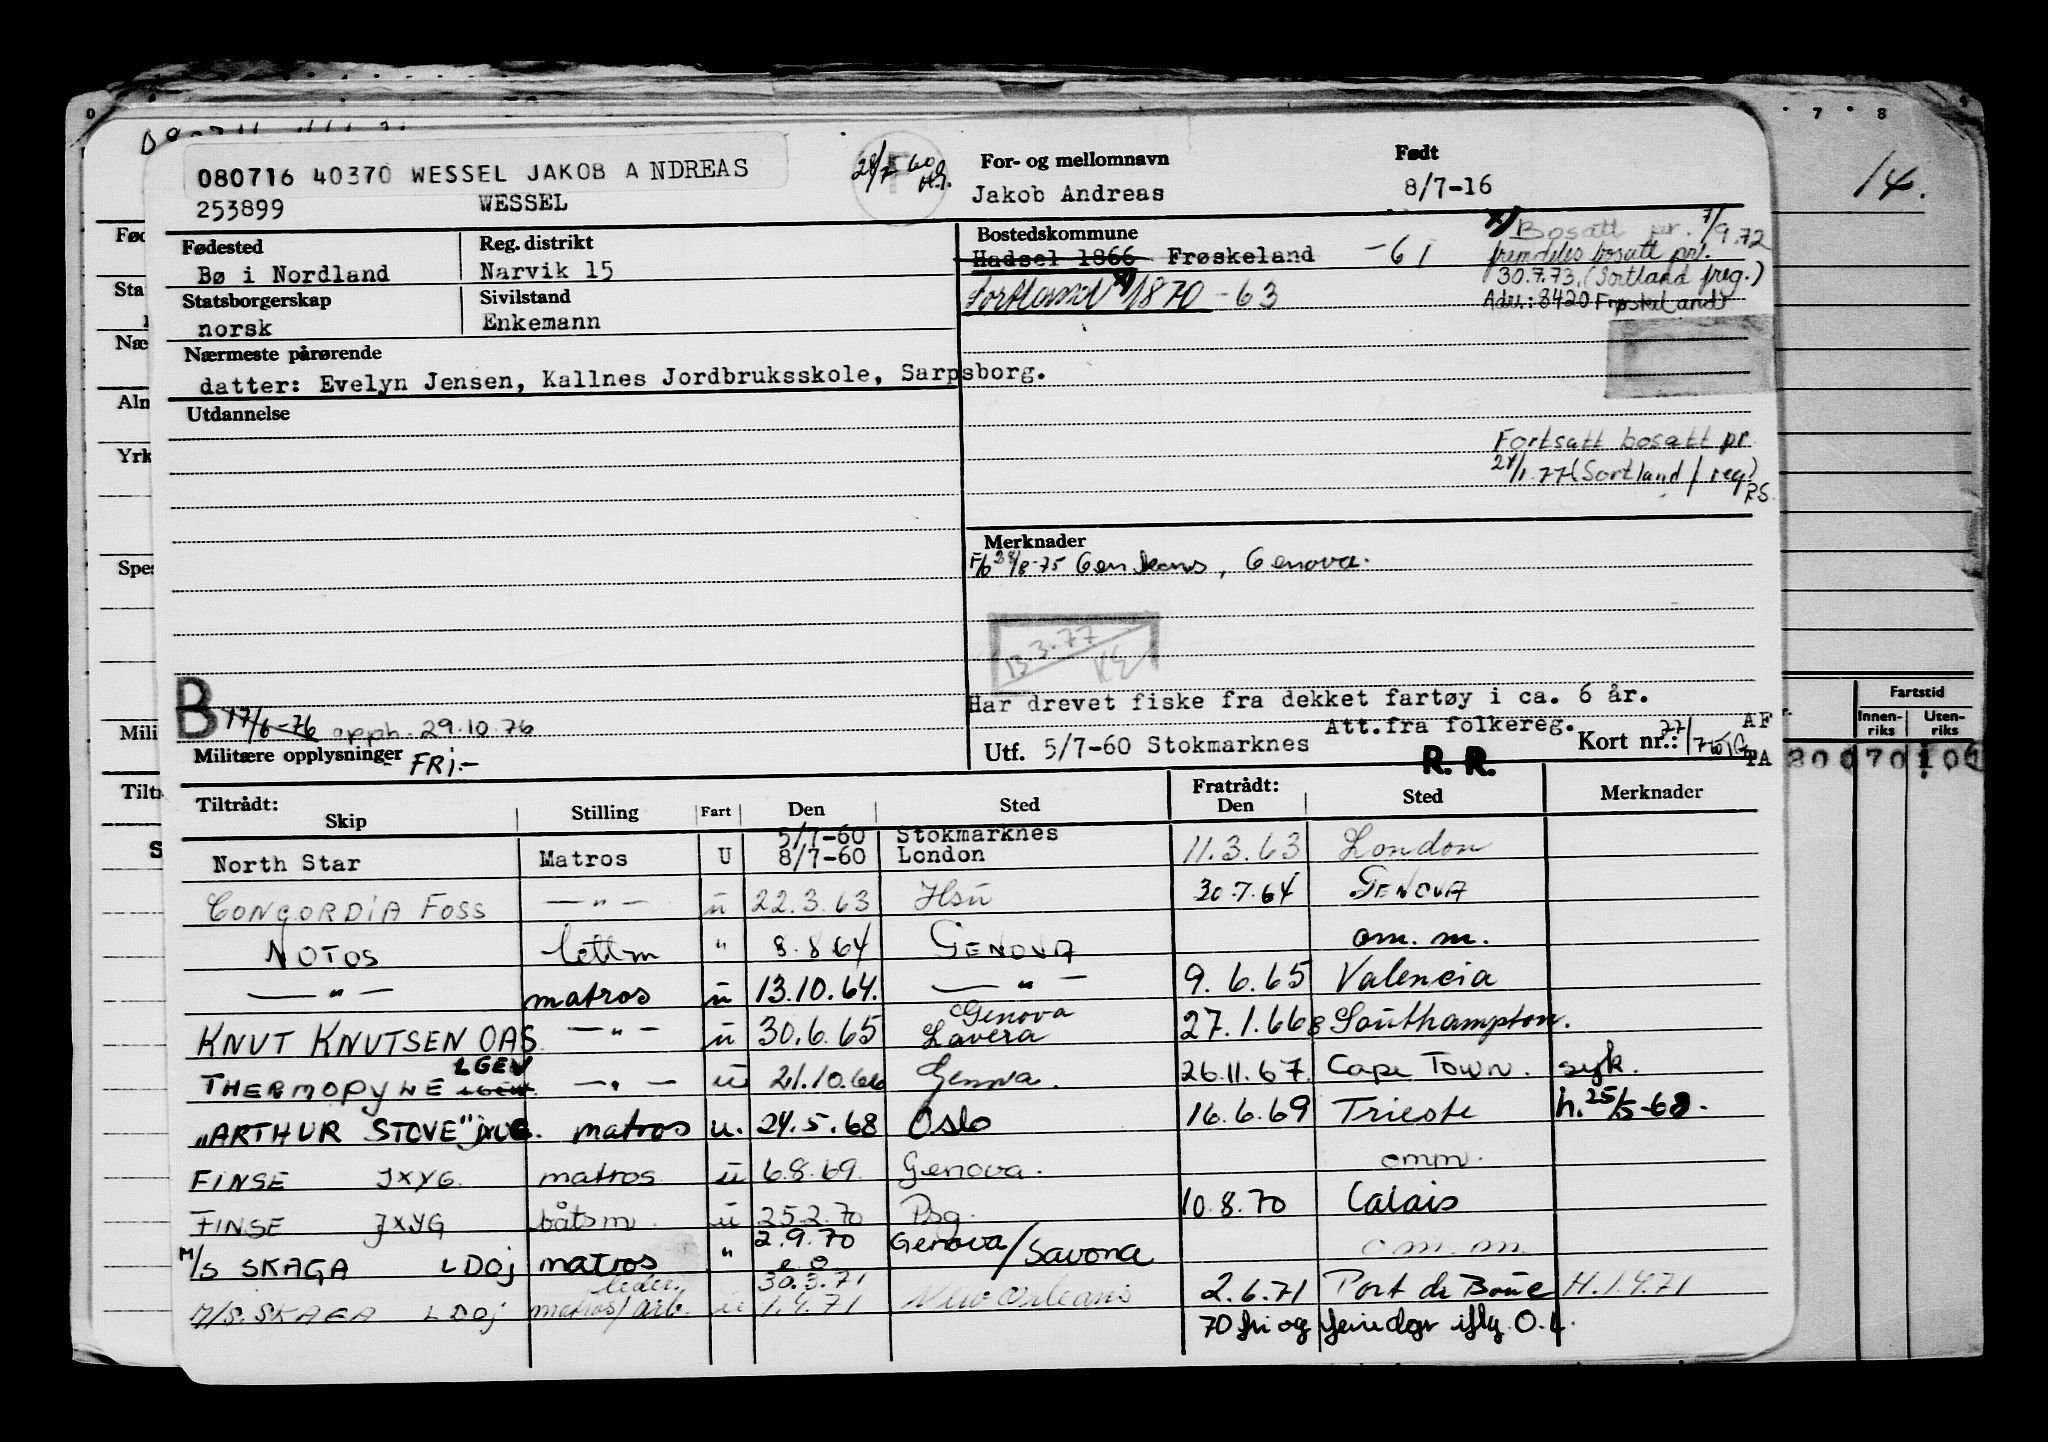 14.
080716 40370 WESSEL JAKOB ANDREAS
253899 WESSEL
28/7-60
For- og mellomnavn
Jakob Andreas
Født
8/7-16
Fødested
Bø i Nordland
Reg. distrikt
Narvik 15
Bostedskommune
Hadsel 1866 Frøskeland -61
Sortland x) 1870 -63
x) Bosatt pr. 7/9.72
fremdeles bosatt pr.
30.7.73. (Sortland freg.)
Adr.: 8420 Frøskeland
Statsborgerskap
norsk
Sivilstand
Enkemann
Nærmeste pårørende
datter: Evelyn Jensen, Kallnes Jordbruksskole, Sarpsborg.
Utdannelse
Fortsatt bosatt pr.
24/1.77 (Sortland f reg)
RS.
Merknader
Genova.
13.3.77
RE
Har drevet fiske fra dekket fartøy i ca. 6 år.
Att.fra folkereg.
B 17/6-76 opph. 29.10.76
Utf. 5/7-60 Stokmarknes
R. R.
Kort nr.:
AF
PA
Militære opplysninger FRi:-
Tiltrådt:
Skip Stilling Fart Den Sted Fratrådt: Den Sted Merknader
5/7-60 Stokmarknes
North Star Matros U 8/7-60 London 11.3.63 London
CONCORDIA FOSS —"— u 22.3.63 Hsü 30.7.64 GENOVA
NOTOS lettm " 8.8.64 GENOVA om. m.
—"— matros u 13.10.64. —"— 9.6.65 Valencia
Genova
KNUT KNUTSEN OAS —"— u 30.6.65 Lavera 27.1.66 Southampton.
LGEV
THERMOPYLE LGEW —"— u 21.10.66 Genova. 26.11.67. Cape Town. syk.
"ARTHUR STOVE" JXUG. matros u. 24.5.68 Oslo 16.6.69 Trieste h. 25/5-68.
FINSE JXYG. matros u 6.8.69. Genova. omm.
FINSE JXYG båtsm. u 25.2.70 Psg. 10.8.70 Calais
M/S SKAGA LDOJ matros " 2.9.70 Genova/Savona o m. m.
leder. 30.3.71
M/S. SKAGA LDOJ matros/arb. u 1.4.71 New Orleans 2.6.71 Port de Bouc H.1.4.71
70 fri og feriedgr iflg O.L.
Fartstid
Innen-
riks
Uten-
riks
Fød
Sta
Næ
Aln
Yrk
Spes
Mili
Tiltr
S
7 8